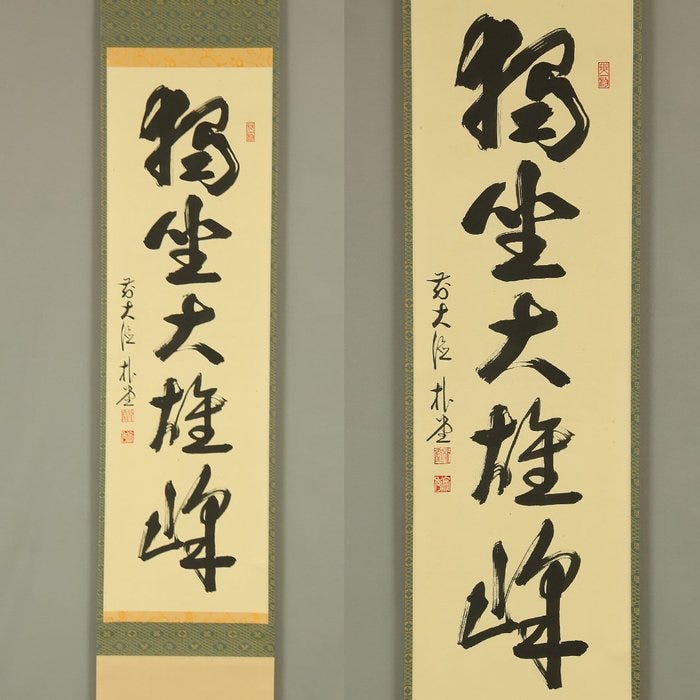 獨坐大雄峰
前大徳 朴堂
獨坐大雄峰
前大徳 朴堂